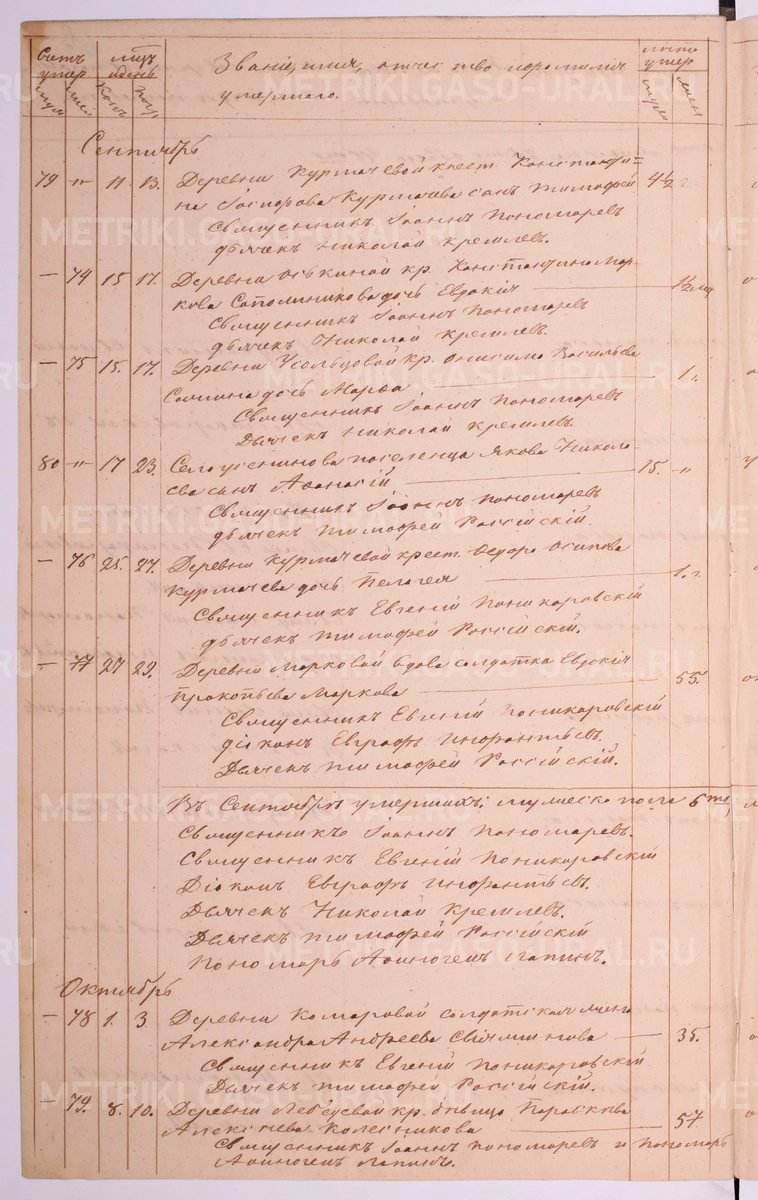 Счетъ умер
мцъ и день
Званіе, имя, отчество и фамилія
умершаго.
лета умер
муж жен
Сентябрь
79 " 11 13. Деревни Курмачевой крест. Константи=
на Іосифова Курмачева сынъ Тимофей 4½ г
Священникъ Іоаннъ Пономаревъ
дьячекъ Николай Кремлевъ.
— 74 15 17. Деревни Оськиной кр. Константина Мар
кова Сапожникова дочь Евдокія
Священникъ Іоаннъ Пономаревъ
дьячекъ Николай Кремлевъ.
— 75 15. 17. Деревни Усольцовой кр. Онисима Васильева
дочь Марфа 1 г.
Священникъ Іоаннъ Пономаревъ
Дьячекъ Николай Кремлевъ.
80 " 17 23. Села поселенца Якова Никола
ева сынъ Афанасій 15. "
Священникъ Іоаннъ Пономаревъ
дьячекъ Тимофей Россійскій.
— 76 25. 27. Деревни Курмачевой крест. Федора Осипова
Курмачева дочь Пелагея 1. г
Священникъ Евгеній Поникаровскій
дьячекъ Тимофей Россійскій.
— 77 27 29. Деревни Марковой вдова солдатка Евдокія
Прокопьева Маркова 55.
Священникъ Евгеній Поникаровскій
діаконъ Евграфъ Инфантьевъ.
Дьячекъ Тимофей Россійскій.
Въ Сентябрѣ умершихъ: мужеска пола 6ть,
Священникъ Іоаннъ Пономаревъ.
Священникъ Евгеній Поникаровскій
Діаконъ Евграфъ Инфантьевъ.
Дьячекъ Николай Кремлевъ.
Дьячекъ Тимофей Россійскій
Пономарь Афиногенъ Лапинъ.
Октябрь
— 78 1. 3 Деревни Комаровой солдатская жена
Александра Андреева 35.
Священникъ Евгеній Поникаровскій
Дьячекъ Тимофей Россійскій.
— 79. 8. 10. Деревни кр. Параскева
Алексѣева Колесникова 57
Священникъ Іоаннъ Пономаревъ и Пономарь
Афиногенъ Лапинъ.
METRIKI.GASO-URAL.RU